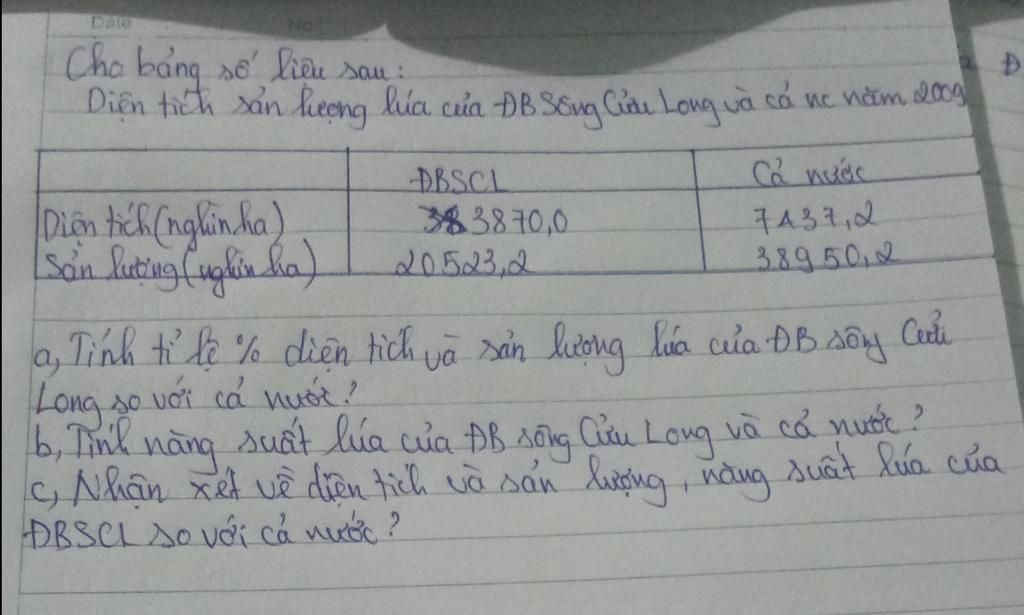 Date No
Cho bảng số liệu sau:
Diện tích sản lượng lúa của ĐB Sông Cửu Long và cả nc năm 2009
ĐBSCL Cả nước
Diện tích (nghìn ha) 3870,0 7437,2
Sản lượng (nghìn ha) 20523,2 38950,2
a, Tính tỉ lệ % diện tích và sản lượng lúa của ĐB sông Cửu
Long so với cả nước?
b, Tính năng suất lúa của ĐB sông Cửu Long và cả nước?
c, Nhận xét về diện tích và sản lượng, năng suất lúa của
ĐBSCL so với cả nước?
Đ